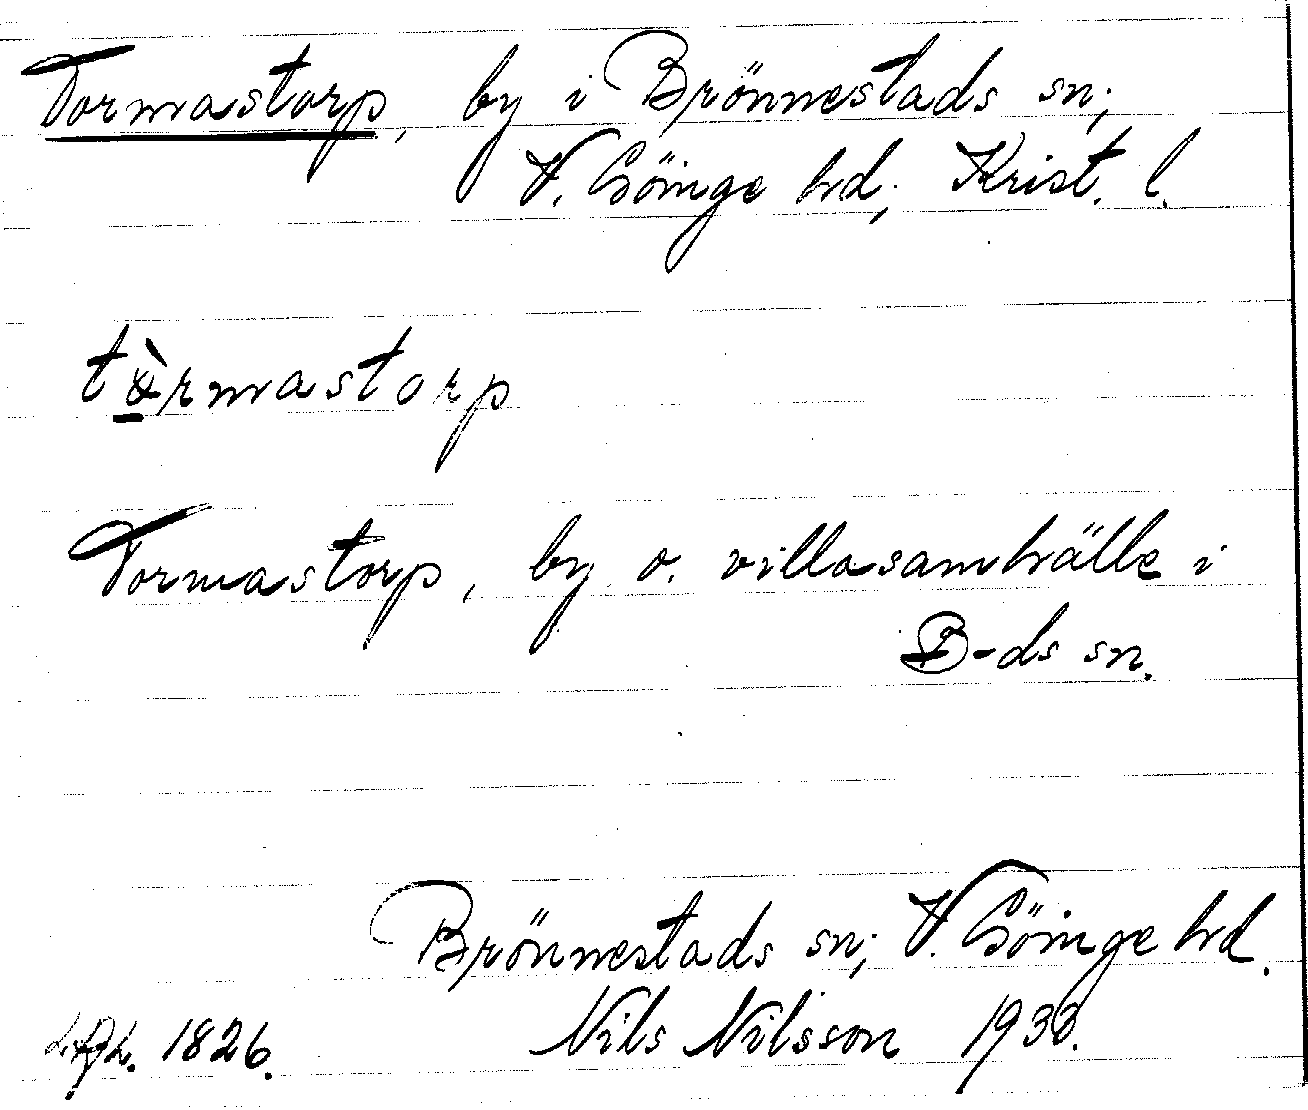 Tormastorp, by i Brönnestads sn;
V. Göinge hd; Krist. l.
tòrmastorp
Tormastorp, by o. villasamhälle i
B-ds sn.
Brönnestads sn; V. Göinge hd.
1826. Nils Nilsson 1933.